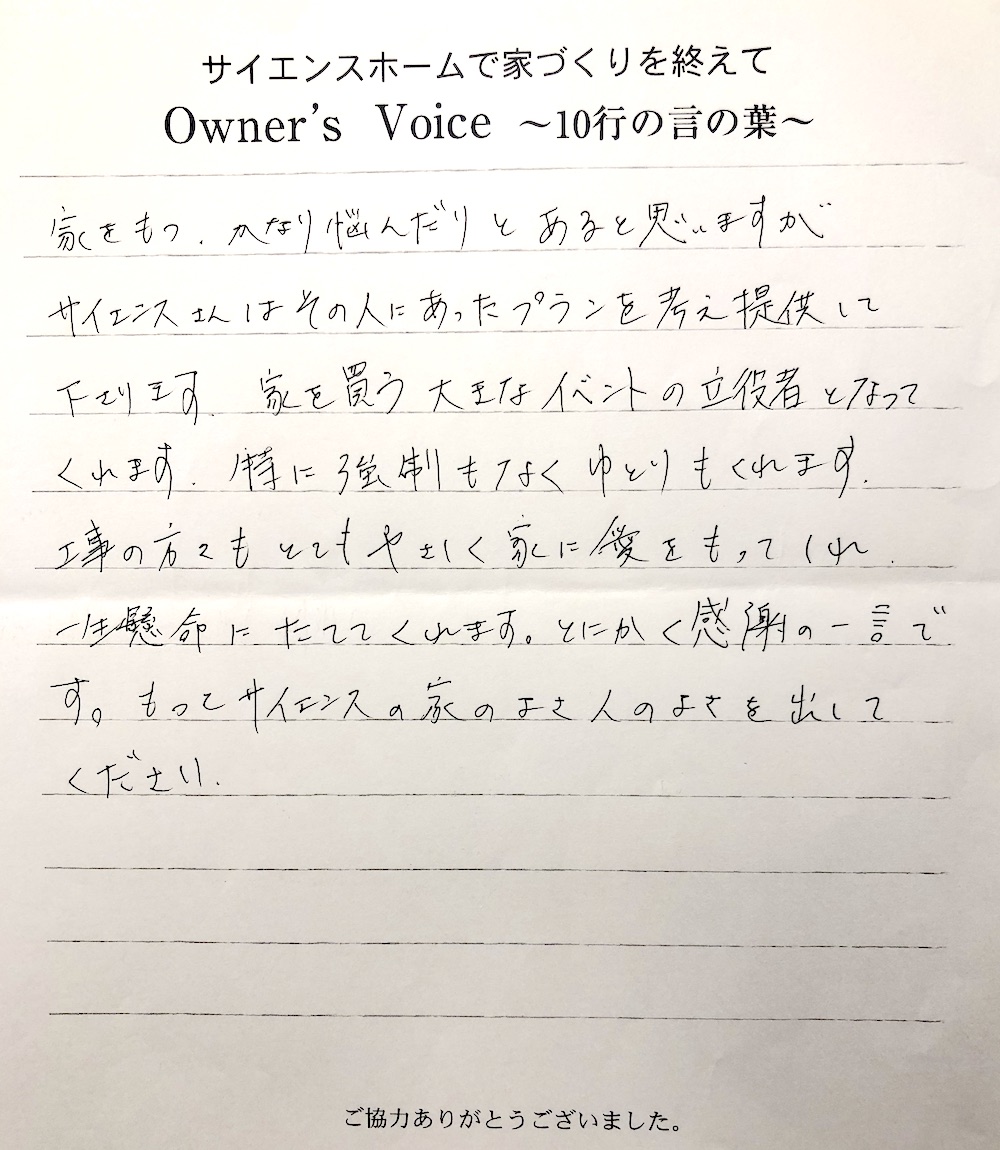 サイエンスホームで家づくりを終えて
Owner's Voice ～10行の言の葉～
家をもつ、かなり悩んだりとあると思いますが
サイエンスさんはその人にあったプランを考え提供して
下さります。家を買う大きなイベントの立役者となって
くれます。特に強制もなくゆとりもくれます。
工事の方々もとてもやさしく家に愛をもってくれ、
一生懸命にたててくれます。とにかく感謝の一言で
す。もってサイエンスの家のよさ人のよさを出して
ください。
ご協力ありがとうございました。